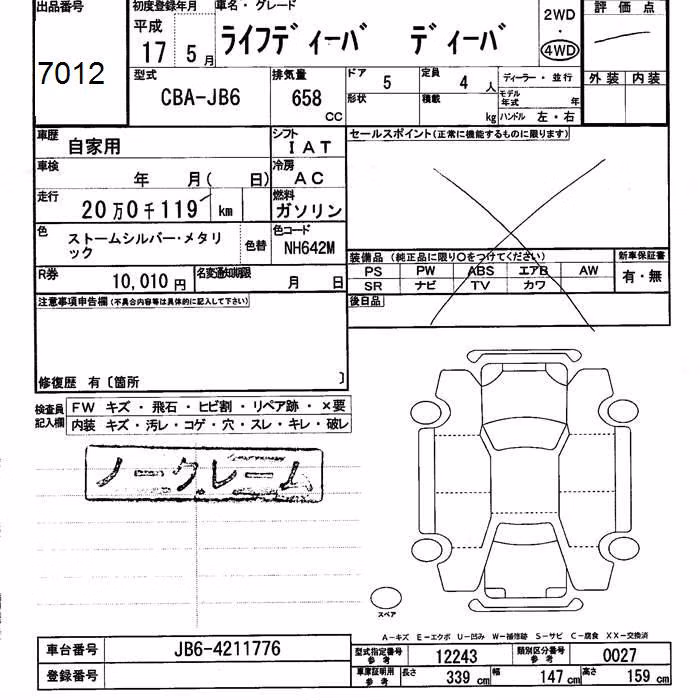 出品番号 初度登録年月 車名・グレード 2WD ・ 4WD 評価点
7012 平成 17 5月 ライフディーバ ディーバ
外装 内装
型式 CBA-JB6 排気量 658 CC ドア 5 定員 4 人 ディーラー・並行
形状 積載 kg モデル年式 年 ハンドル 左・右
車歴 自家用 シフト IAT セールスポイント(正常に機能するものに限ります)
車検 年 月( 日) 冷房 AC
走行 20万0千119 km 燃料 ガソリン
色 ストームシルバー・メタリック 色替 色コード NH642M
装備品(純正品に限り○をつけてください) 新車保証書
PS PW ABS エアB AW 有・無
SR ナビ TV カワ
R券 10,010円 名変通知期限 月 日
後日品
注意事項申告欄(不具合内容等は具体的に記入して下さい)
修復歴 有〔箇所 〕
検査員記入欄 FW キズ・飛石・ヒビ割・リペア跡・×要
内装 キズ・汚レ・コゲ・穴・スレ・キレ・破レ
ノークレーム
スペア
A-キズ E-エクボ U-凹み W-補修跡 S-サビ C-腐食 XX-交換済
車台番号 JB6-4211776 型式指定番号参考 12243 類別区分番号参考 0027
登録番号 車庫証明用参考 長さ 339 cm 幅 147 cm 高さ 159 cm